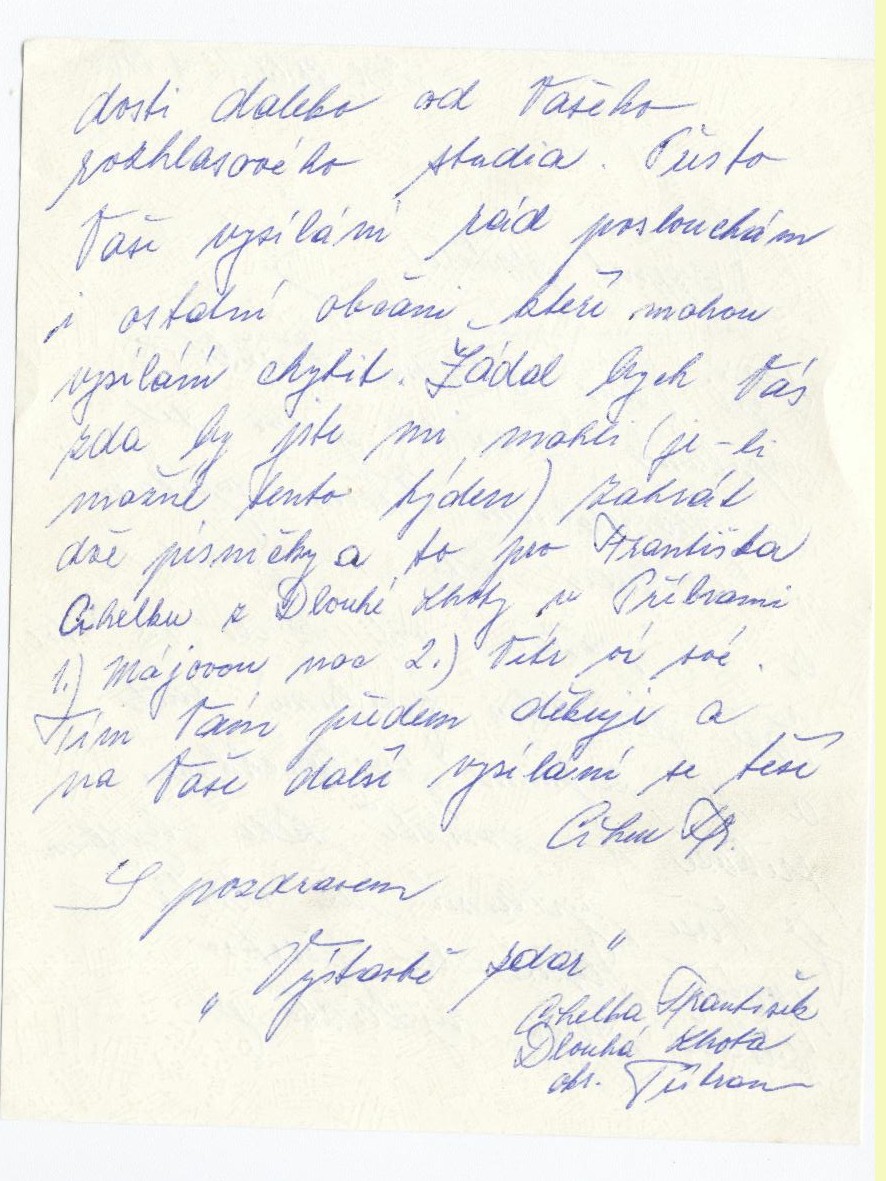 dosti daleko od Vašeho
rozhlasového studia. Přesto
Vaše vysílání rád poslouchám
i ostatní občani kteří mohou
vysílání chytit. Žádal bych Vás
zda by jste mi mohli (je-li
možné tento týden) zahrát
dvě písničky a to pro Františka
Cihelku z Dlouhé Lhoty u Příbrami
1.) Májovou noc 2.) Vítr ví své.
Tím Vám předem děkuji a
na Vaše další vysílání se těší
Fr.
S pozdravem
zdar"
Cihelka František
Dlouhá Lhota
okr. Příbram